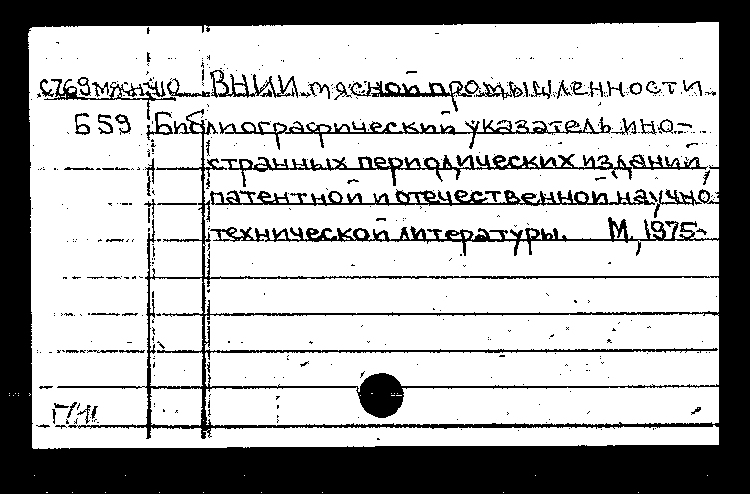 С769мясн910 ВНИИ мясной промышленности
Б59 Библиографический указатель ино-
странных периодических изданий,
патентной и отечественной научно-
технической литературы. М., 1975-